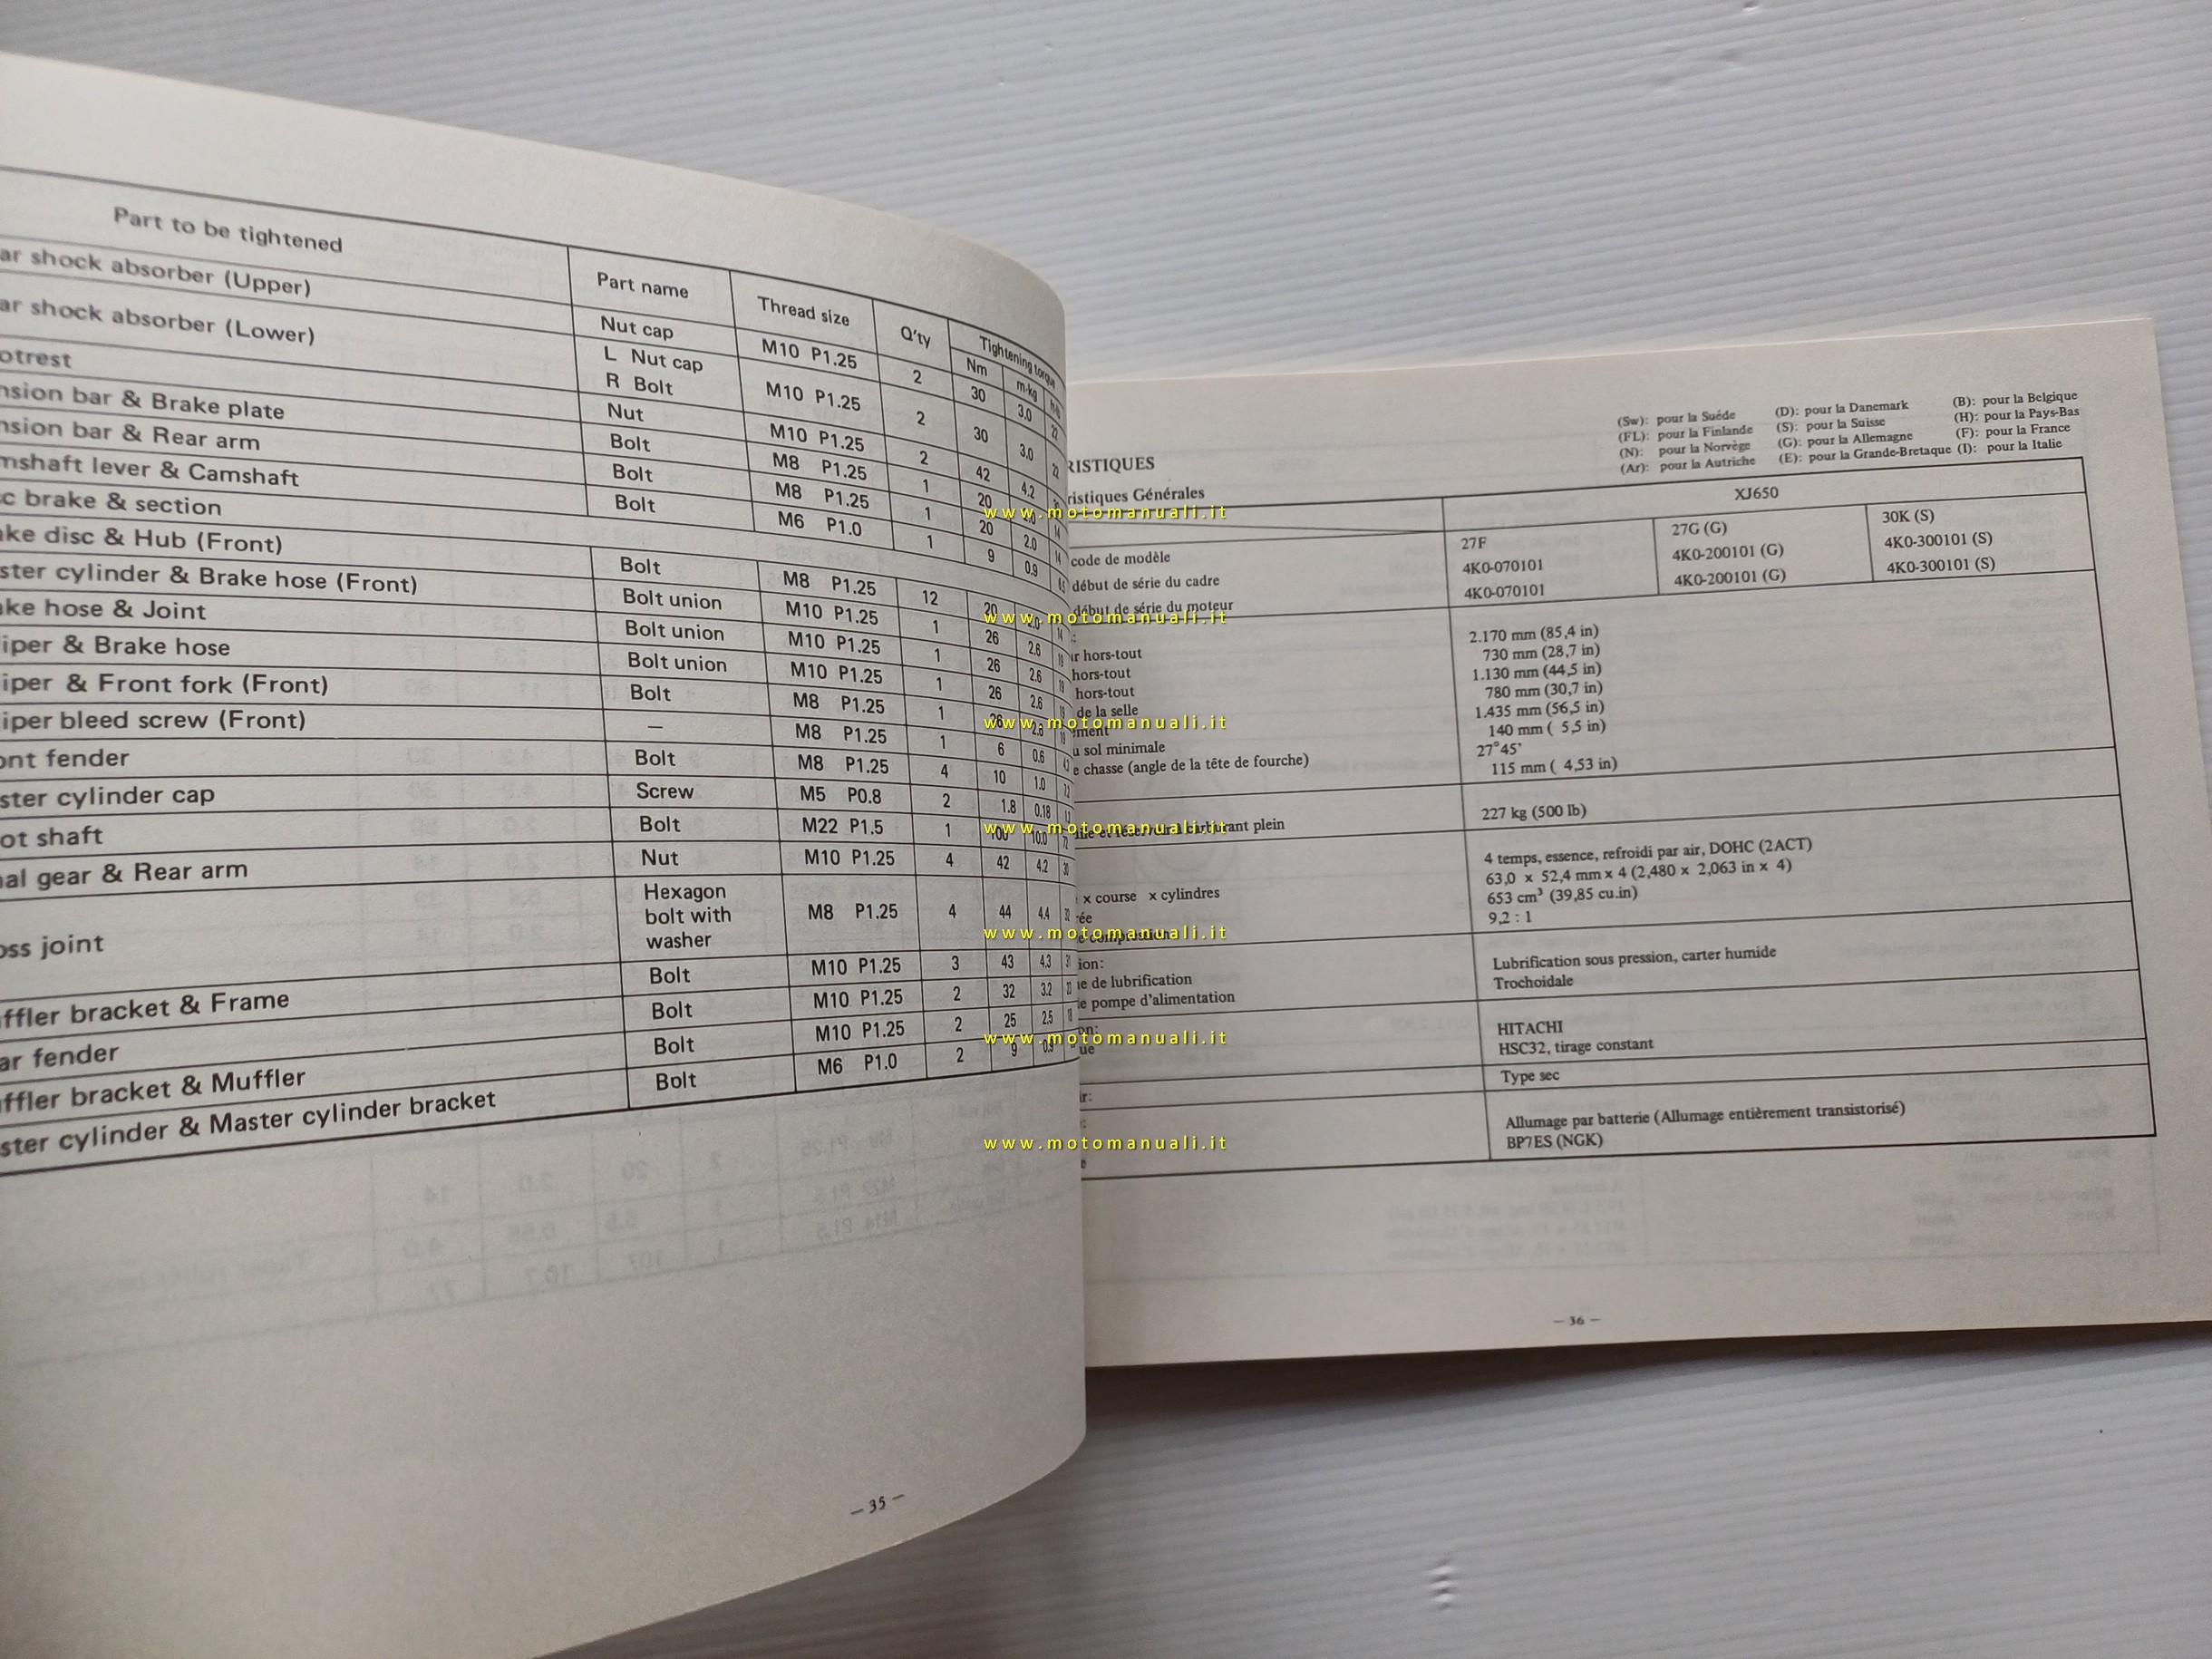 Part to be tightened Part name Thread size Q'ty Tightening torque
Nm m·kg
ar shock absorber (Upper) Nut cap M10 P1.25 2 30 3.0 22
ar shock absorber (Lower) L Nut cap
R Bolt M10 P1.25 2 30 3.0 22
otrest Nut M10 P1.25 2 42 4.2
nsion bar & Brake plate Bolt M8 P1.25 1 20 2.0 14
nsion bar & Rear arm Bolt M8 P1.25 1 20 2.0 14
mshaft lever & Camshaft Bolt M6 P1.0 1 9 0.9
c brake & section
ake disc & Hub (Front) Bolt M8 P1.25 12 20 2.0 14
ster cylinder & Brake hose (Front) Bolt union M10 P1.25 1 26 2.6 19
ake hose & Joint Bolt union M10 P1.25 1 26 2.6 19
iper & Brake hose Bolt union M10 P1.25 1 26 2.6 19
iper & Front fork (Front) Bolt M8 P1.25 1 26 2.6
iper bleed screw (Front) — M8 P1.25 1 6 0.6 4.3
ont fender Bolt M8 P1.25 4 10 1.0 7.2
ster cylinder cap Screw M5 P0.8 2 1.8 0.18 1.3
ot shaft Bolt M22 P1.5 1 100 10.0 72
nal gear & Rear arm Nut M10 P1.25 4 42 4.2 30
oss joint Hexagon
bolt with
washer M8 P1.25 4 44 4.4 32
Bolt M10 P1.25 3 43 4.3 31
ffler bracket & Frame Bolt M10 P1.25 2 32 3.2 23
ar fender Bolt M10 P1.25 2 25 2.5 18
ffler bracket & Muffler Bolt M6 P1.0 2 9 0.9
ster cylinder & Master cylinder bracket
— 35 —
(Sw): pour la Suéde (D): pour la Danemark (B): pour la Belgique
(FL): pour la Finlande (S): pour la Suisse (H): pour la Pays-Bas
(N): pour la Norvège (G): pour la Allemagne (F): pour la France
(Ar): pour la Autriche (E): pour la Grande-Bretaque (I): pour la Italie
RISTIQUES
ristiques Générales
XJ650
code de modèle 27F 27G (G) 30K (S)
début de série du cadre 4K0-070101 4K0-200101 (G) 4K0-300101 (S)
début de série du moteur 4K0-070101 4K0-200101 (G) 4K0-300101 (S)
ur hors-tout 2.170 mm (85,4 in)
hors-tout 730 mm (28,7 in)
hors-tout 1.130 mm (44,5 in)
de la selle 780 mm (30,7 in)
ment 1.435 mm (56,5 in)
u sol minimale 140 mm ( 5,5 in)
e chasse (angle de la tête de fourche) 27°45'
115 mm ( 4,53 in)
carburant plein 227 kg (500 lb)
4 temps, essence, refroidi par air, DOHC (2ACT)
x course x cylindres 63,0 x 52,4 mm x 4 (2,480 x 2,063 in x 4)
rée 653 cm³ (39,85 cu.in)
9,2 : 1
ion:
ne de lubrification Lubrification sous pression, carter humide
le pompe d'alimentation Trochoidale
on:
HITACHI
ue HSC32, tirage constant
ir: Type sec
Allumage par batterie (Allumage entièrement transistorisé)
e BP7ES (NGK)
— 36 —
www.motomanuali.it
www.motomanuali.it
www.motomanuali.it
www.motomanuali.it
www.motomanuali.it
www.motomanuali.it
www.motomanuali.it